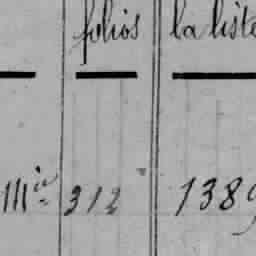 folios la liste
Mie 312 1389